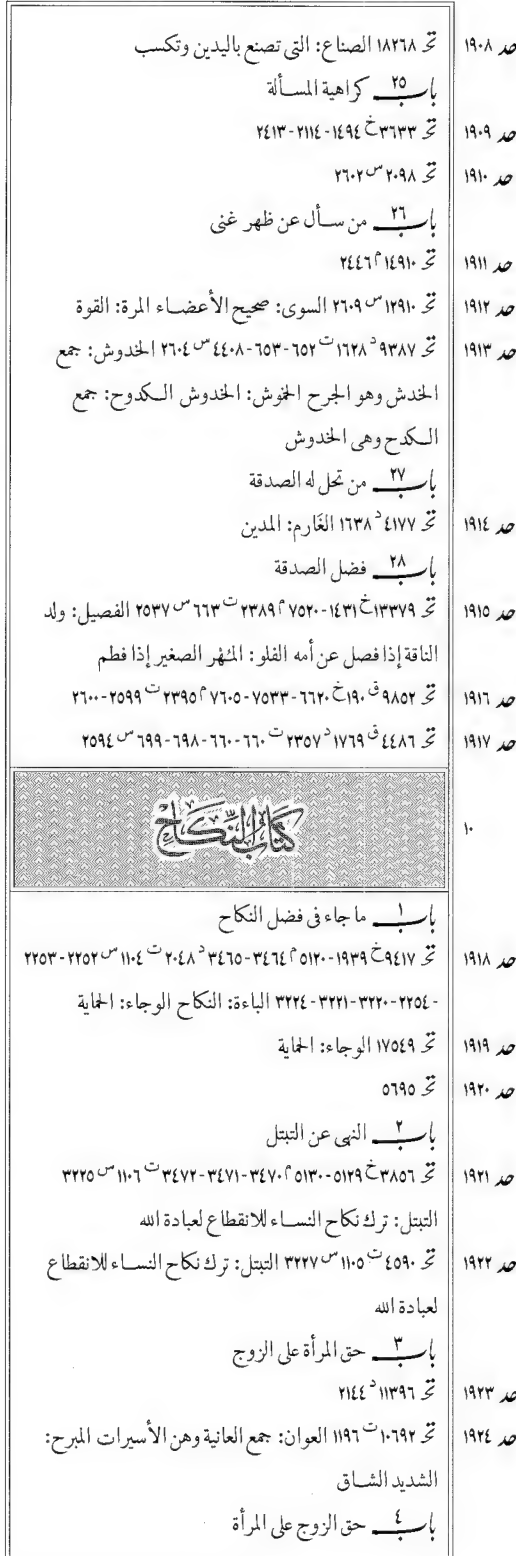 حد ١٩٠٨ تحـ ١٨٢٦٨ الصناع: التى تصنع باليدين وتكسب
باب ٢٥ كراهية المسألة
حد ١٩٠٩ تحـ ٣٦٣٣ خ ١٤٩٤-٢١١٤-٢٤١٣
حد ١٩١٠ تحـ ٢٠٩٨ س ٢٦٠٢
باب ٢٦ من سأل عن ظهر غنى
حد ١٩١١ تحـ ١٤٩١٠ م ٢٤٤٦
حد ١٩١٢ تحـ ١٢٩١٠ س ٢٦٠٩ السوى: صحيح الأعضاء المرة: القوة
حد ١٩١٣ تحـ ٩٣٨٧ د ١٦٢٨ ت ٦٥٢-٦٥٣-٤٤٠٨ س ٢٦٠٤ الخدوش: جمع
الخدش وهو الجرح الخموش: الخدوش الكدوح: جمع
الكدح وهى الخدوش
باب ٢٧ من تحل له الصدقة
حد ١٩١٤ تحـ ٤١٧٧ د ١٦٣٨ الغَارم: المدين
باب ٢٨ فضل الصدقة
حد ١٩١٥ تحـ ١٣٣٧٩ خ ١٤٣١-٧٥٢٠ م ٢٣٨٩ ت ٦٦٣ س ٢٥٣٧ الفصيل: ولد
الناقة إذا فصل عن أمه الفلو: المُهْر الصغير إذا فطم
حد ١٩١٦ تحـ ٩٨٥٢ ق ١٩٠ خ ٦٦٢٠-٧٥٣٣-٧٦٠٥ م ٢٣٩٥ ت ٢٥٩٩-٢٦٠٠
حد ١٩١٧ تحـ ٤٤٨٦ ق ١٧٦٩ د ٢٣٥٧ ت ٦٦٠-٦٦٠-٦٩٨-٦٩٩ س ٢٥٩٤
١٠ كتاب النكاح
باب ١ ما جاء فى فضل النكاح
حد ١٩١٨ تحـ ٩٤١٧ خ ١٩٣٩-٥١٢٠ م ٣٤٦٤-٣٤٦٥ د ٢٠٤٨ ت ١١٠٤ س ٢٢٥٢-٢٢٥٣
-٢٢٥٤-٣٢٢٠-٣٢٢١-٣٢٢٤ الباءة: النكاح الوجاء: الحماية
حد ١٩١٩ تحـ ١٧٥٤٩ الوجاء: الحماية
حد ١٩٢٠ تحـ ٥٦٩٥
باب ٢ النهى عن التبتل
حد ١٩٢١ تحـ ٣٨٥٦ خ ٥١٢٩-٥١٣٠ م ٣٤٧٠-٣٤٧١-٣٤٧٢ ت ١١٠٦ س ٣٢٢٥
التبتل: ترك نكاح النساء للانقطاع لعبادة الله
حد ١٩٢٢ تحـ ٤٥٩٠ ت ١١٠٥ س ٣٢٢٧ التبتل: ترك نكاح النساء للانقطاع
لعبادة الله
باب ٣ حق المرأة على الزوج
حد ١٩٢٣ تحـ ١١٣٩٦ د ٢١٤٤
حد ١٩٢٤ تحـ ١٠٦٩٢ ت ١١٩٦ العوان: جمع العانية وهن الأسيرات المبرح:
الشديد الشاق
باب ٤ حق الزوج على المرأة